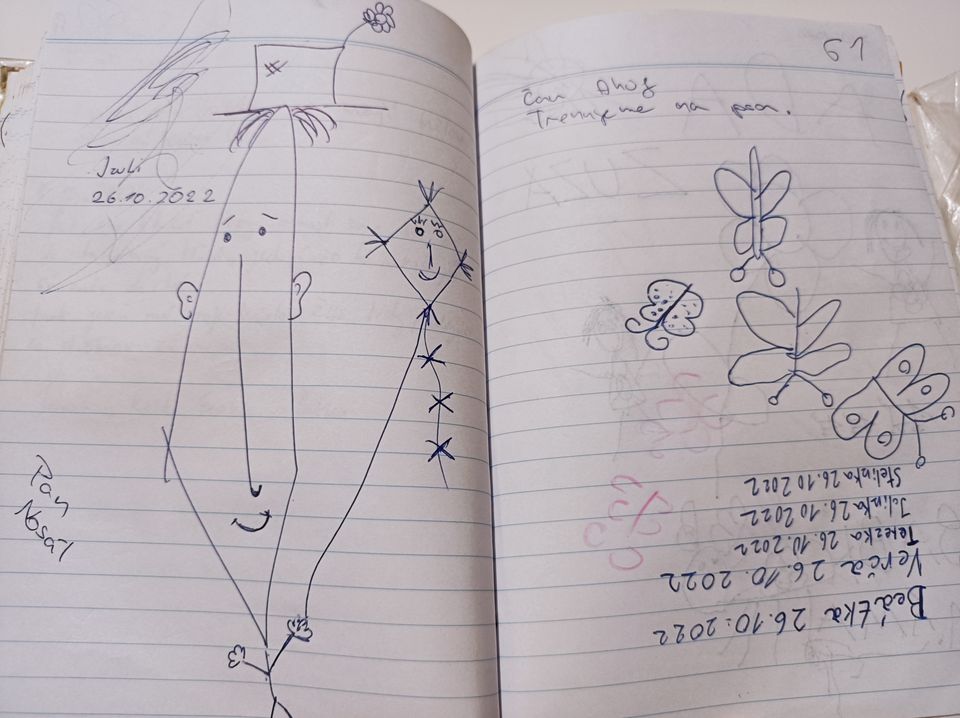 Juli
26.10.2022
Pan
61
Čau Ahoj
Trenujeme na
Beátka 26.10.2022
Verča 26.10.2022
Terezka 26.10.2022
Jolinka 26.10.2022
Stelinka 26.10.2022